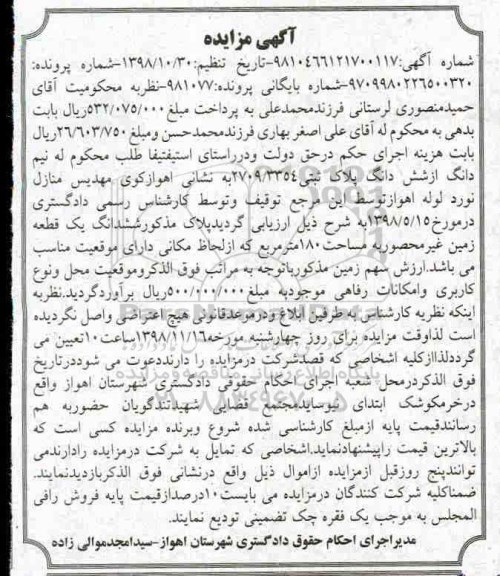 آگهی مزایده
شماره آگهی:۹۸۱۰۴۶۶۱۲۱۷۰۰۱۱۷-تاریخ تنظیم:۱۳۹۸/۱۰/۳۰-شماره پرونده:
۹۷۰۹۹۸۰۲۲۶۵۰۰۳۲۰-شماره بایگانی پرونده:۹۸۱۰۷۷-نظربه محکومیت آقای
حمیدمنصوری لرستانی فرزندمحمدعلی به پرداخت مبلغ ۵۳۲/۰۷۵/۰۰۰ریال بابت
بدهی به محکوم له آقای علی اصغر بهاری فرزندمحمدحسن ومبلغ ۲۶/۶۰۳/۷۵۰ریال
بابت هزینه اجرای حکم درحق دولت ودرراستای استیفتیفا طلب محکوم له نیم
دانگ ازشش دانگ پلاک ثبتی۲۷۰۹/۳۳۵۴به نشانی اهوازکوی مهدیس منازل
نورد لوله اهوازتوسط این مرجع توقیف وتوسط کارشناس رسمی دادگستری
درمورخ۱۳۹۸/۵/۱۵به شرح ذیل ارزیابی گردیدپلاک مذکورششدانگ یک قطعه
زمین غیرمحصوربه مساحت۱۸۰مترمربع که ازلحاظ مکانی دارای موقعیت مناسب
می باشد.ارزش سهم زمین مذکورباتوجه به مراتب فوق الذکروموقعیت محل ونوع
کاربری وامکانات رفاهی موجودبه مبلغ۵۰۰/۰۰۰/۰۰۰ریال برآوردگردید.نظربه
اینکه نظریه کارشناس به طرفین ابلاغ ودرموعدقانونی هیچ اعتراضی واصل نگردیده
است لذاوقت مزایده برای روز چهارشنبه مورخه۱۳۹۸/۱۱/۱۶ساعت۱۰تعیین می
گرددلذاازکلیه اشخاصی که قصدشرکت درمزایده را دارنددعوت می شوددرتاریخ
فوق الذکردرمحل شعبه اجرای احکام حقوقی دادگستری شهرستان اهواز واقع
درخرمکوشک ابتدای نیوسایدمجتمع قضایی شهیدتندگویان حضوربه هم
رسانندقیمت پایه ازمبلغ کارشناسی شده شروع وبرنده مزایده کسی است که
بالاترین قیمت راپیشنهادنماید.اشخاصی که تمایل به شرکت درمزایده رادارندمی
توانندپنج روزقبل ازمزایده ازاموال ذیل واقع درنشانی فوق الذکربازدیدنمایند.
ضمناکلیه شرکت کنندگان درمزایده می بایست۱۰درصدازقیمت پایه فروش رافی
المجلس به موجب یک فقره چک تضمینی تودیع نمایند.
مدیراجرای احکام حقوق دادگستری شهرستان اهواز-سیدامجدموالی زاده